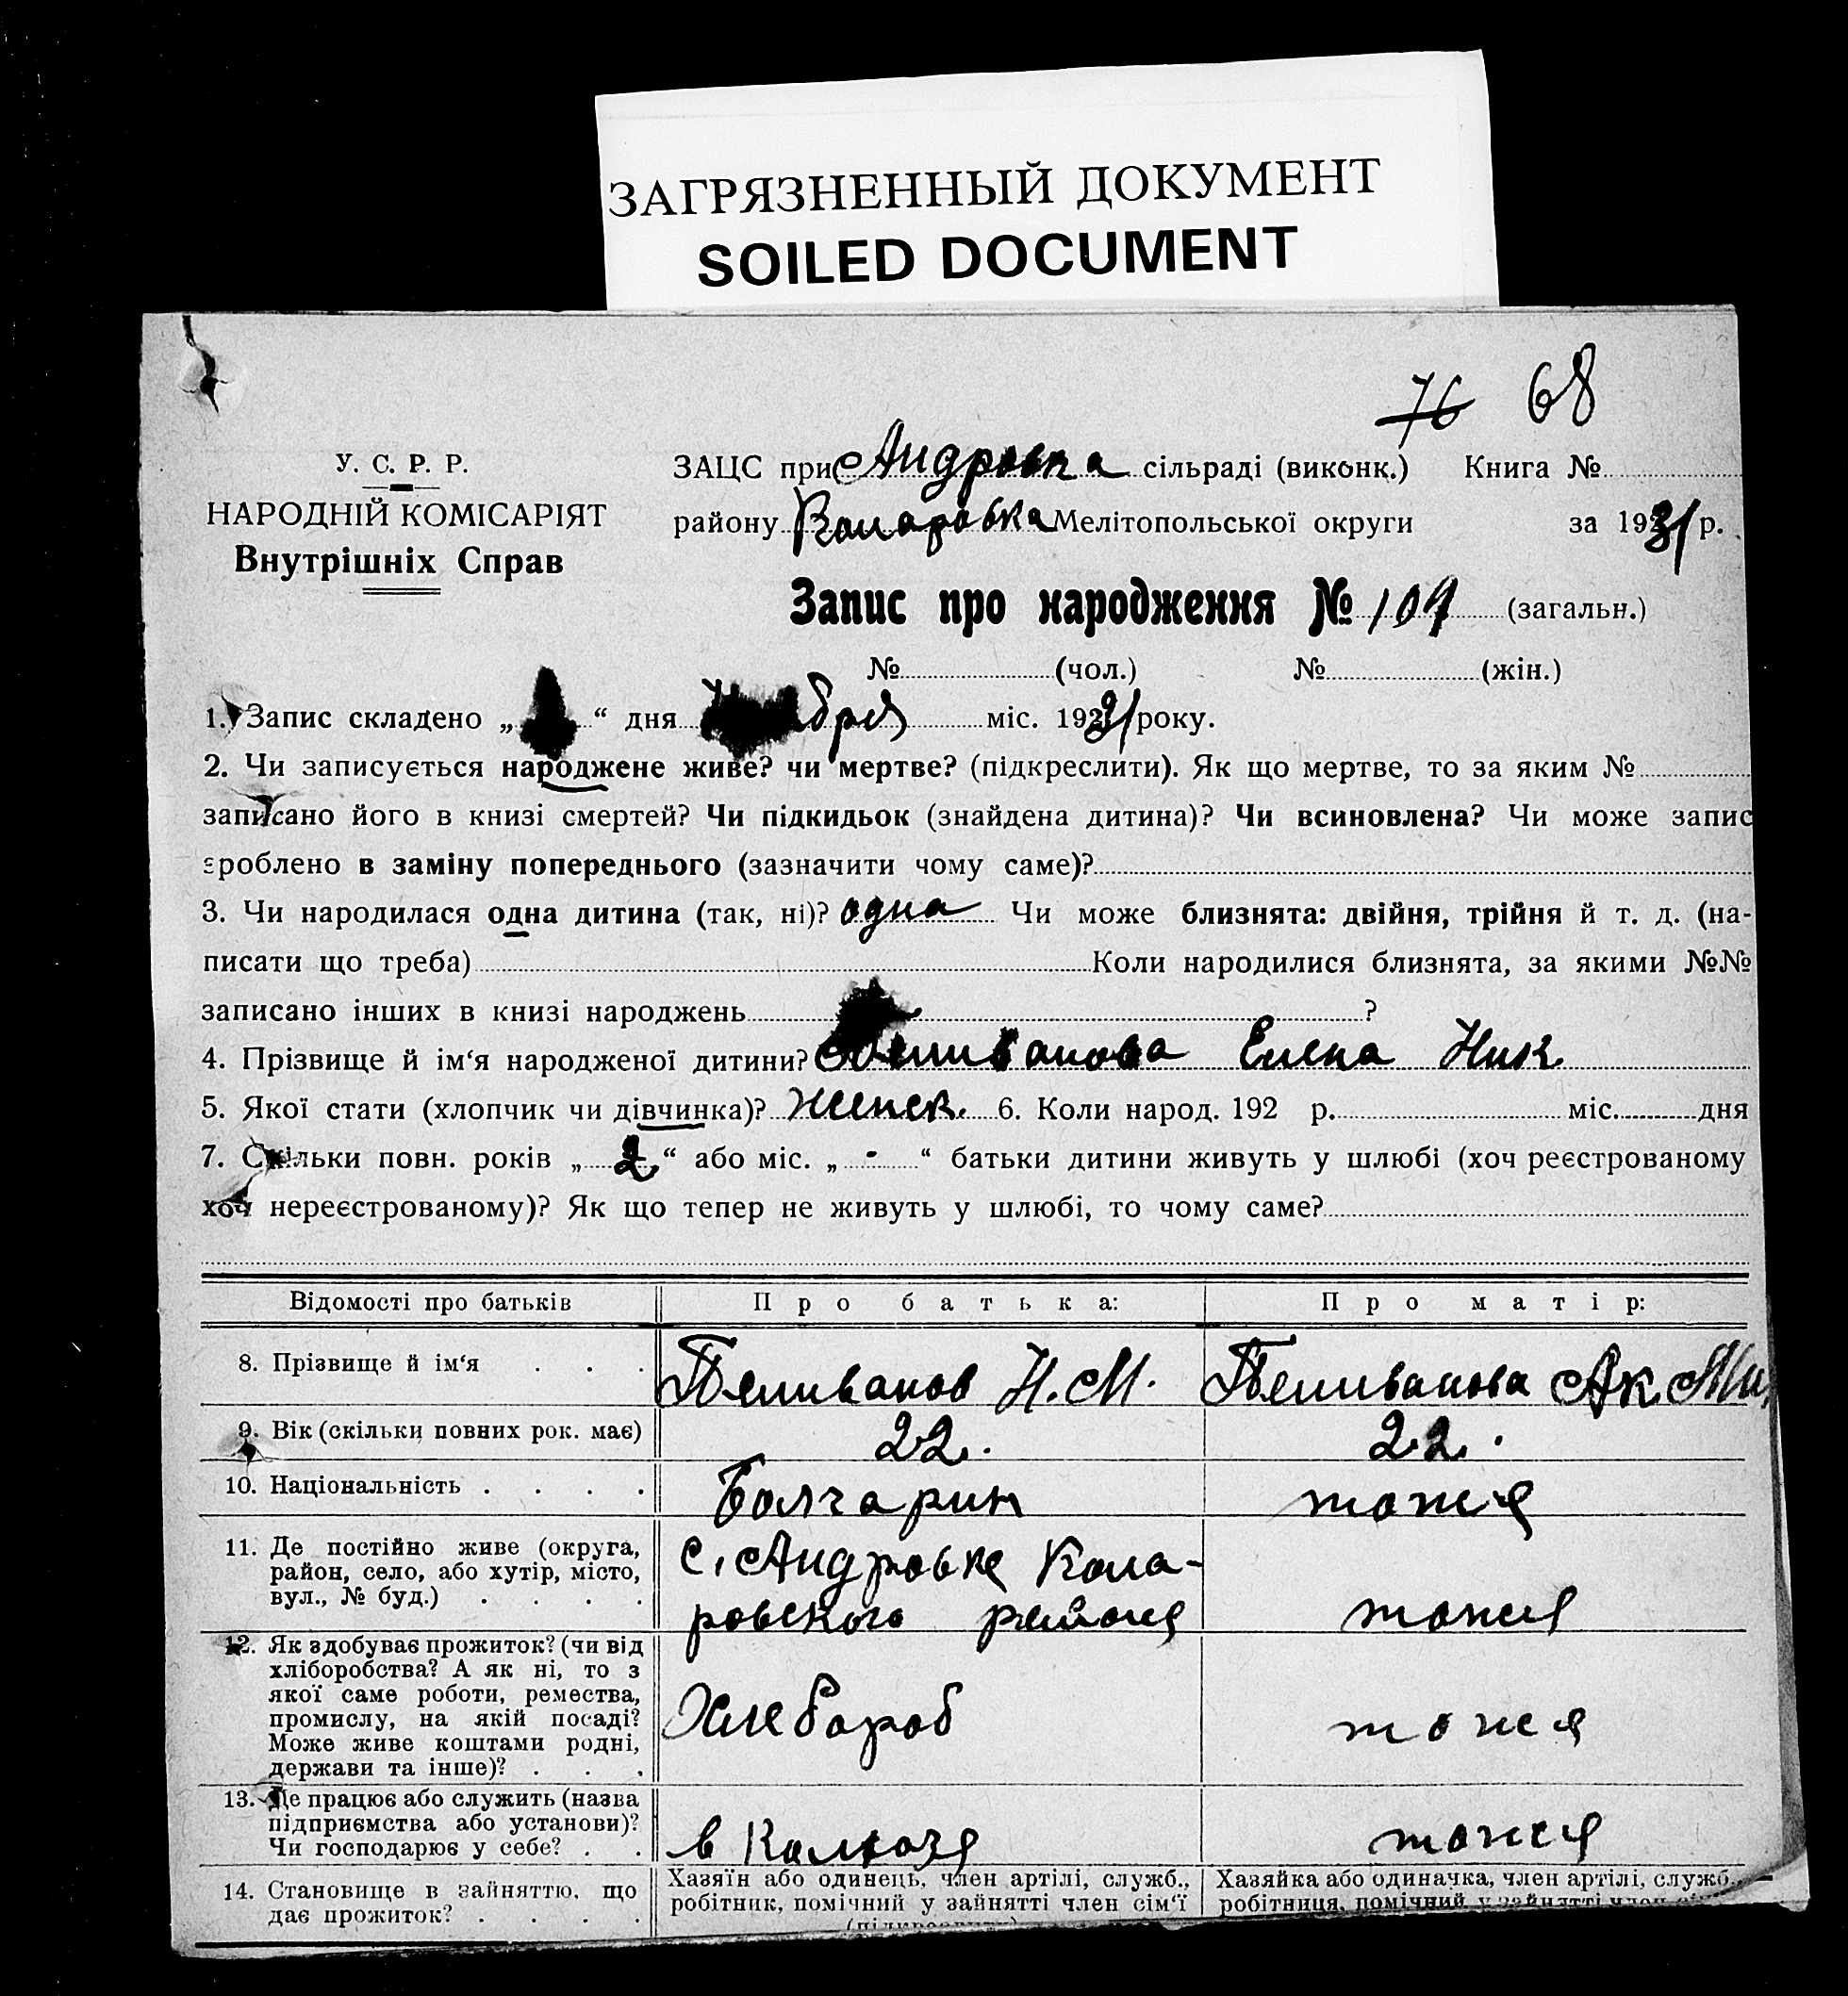 ЗАГРЯЗНЕННЫЙ ДОКУМЕНТ
SOILED DOCUMENT
76 68
У. С. Р. Р.
НАРОДНІЙ КОМІСАРІЯТ
Внутрішніх Справ
ЗАЦС при Андровка сільраді (виконк.) Книга №
району Коларовка Мелітопольської округи за 1931 р.
Запис про народження № 109 (загальн.)
№ (чол.) № (жін.)
1. Запис складено „ “ дня бря міс. 1931 року.
2. Чи записується народжене живе? чи мертве? (підкреслити). Як що мертве, то за яким №
записано його в книзі смертей? Чи підкидьок (знайдена дитина)? Чи всиновлена? Чи може запис
зроблено в заміну попереднього (зазначити чому саме)?
3. Чи народилася одна дитина (так, ні)? одна Чи може близнята: двійня, трійня й т. д. (на-
писати що треба) Коли народилися близнята, за якими №№
записано інших в книзі народжень ?
4. Прізвище й ім‘я народженої дитини? Пеливанова Елена Ник
5. Якої стати (хлопчик чи дівчинка)? женск. 6. Коли народ. 192 р. міс. дня
7. Скільки повн. років „ 2 “ або міс. „ - “ батьки дитини живуть у шлюбі (хоч реєстрованому
хоч нереєстрованому)? Як що тепер не живуть у шлюбі, то чому саме?
Відомості про батьків Про батька: Про матір:
8. Прізвище й ім‘я . . . Пеливанов Н. М. Пеливанова Ак Ми
9. Вік (скільки повних рок. має) 22. 22.
10. Національність . . . . Болгарин тоже
11. Де постійно живе (округа, район, село, або хутір, місто, вул., № буд.) . . . .
с. Андровке Кола-
ровского района тоже
12. Як здобуває прожиток? (чи від
хліборобства? А як ні, то з
якої саме роботи, ремества,
промислу, на якій посаді?
Може живе коштами родні,
держави та інше)? . . .
Хлебороб тоже
13. Де працює або служить (назва
підприємства або установи)?
Чи господарює у себе? . .
в Колхозе тоже
14. Становище в зайняттю, що
дає прожиток? . . . .
Хазяїн або одинець, член артілі, служб.,
робітник, помічний у зайнятті член сім‘ї
(підкреслити)
Хазяйка або одиначка, член артілі, служб.
робітниця, помічний у зайнятті член